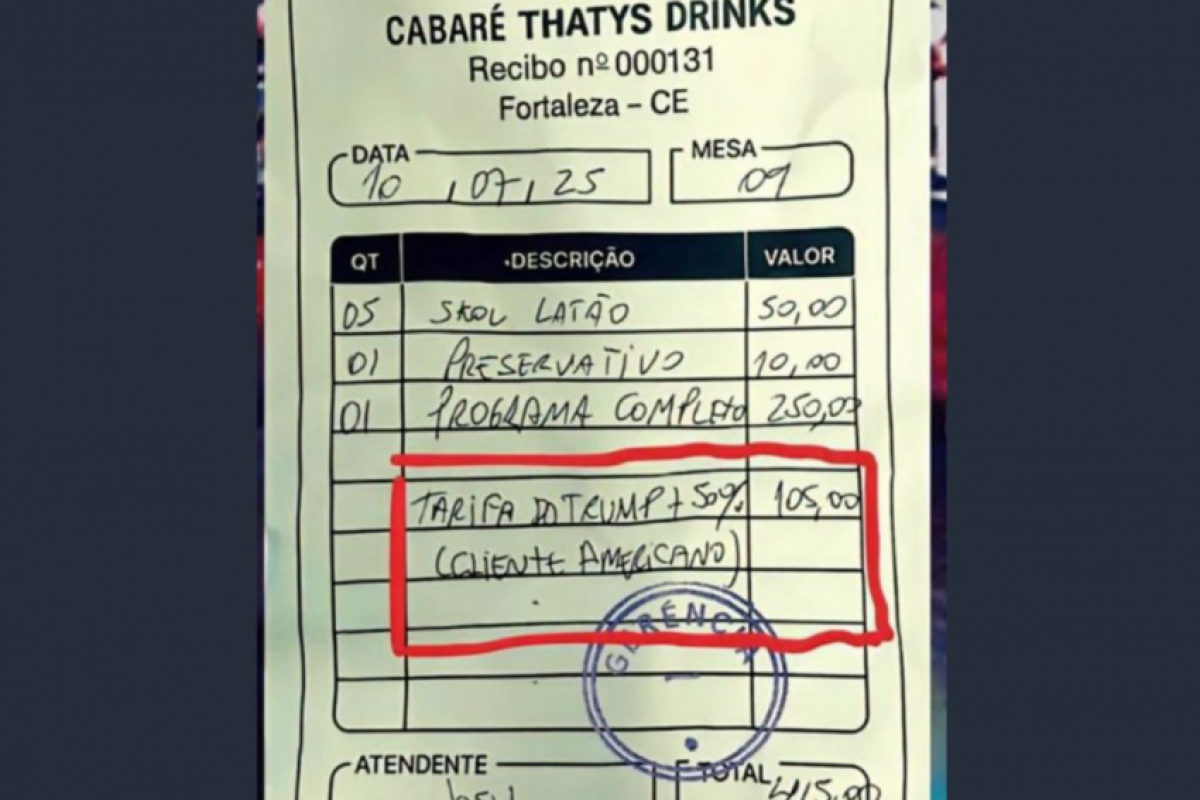 CABARÉ THATYS DRINKS
Recibo nº 000131
Fortaleza – CE
DATA
10 , 07 , 25
MESA
09
QT DESCRIÇÃO VALOR
05 SKOL LATÃO 50,00
01 PRESERVATIVO 10,00
01 PROGRAMA COMPLETO 250,00
TARIFA DO TRUMP + 50% 105,00
(CLIENTE AMERICANO)
GERÊNCIA
ATENDENTE
TOTAL
415,00